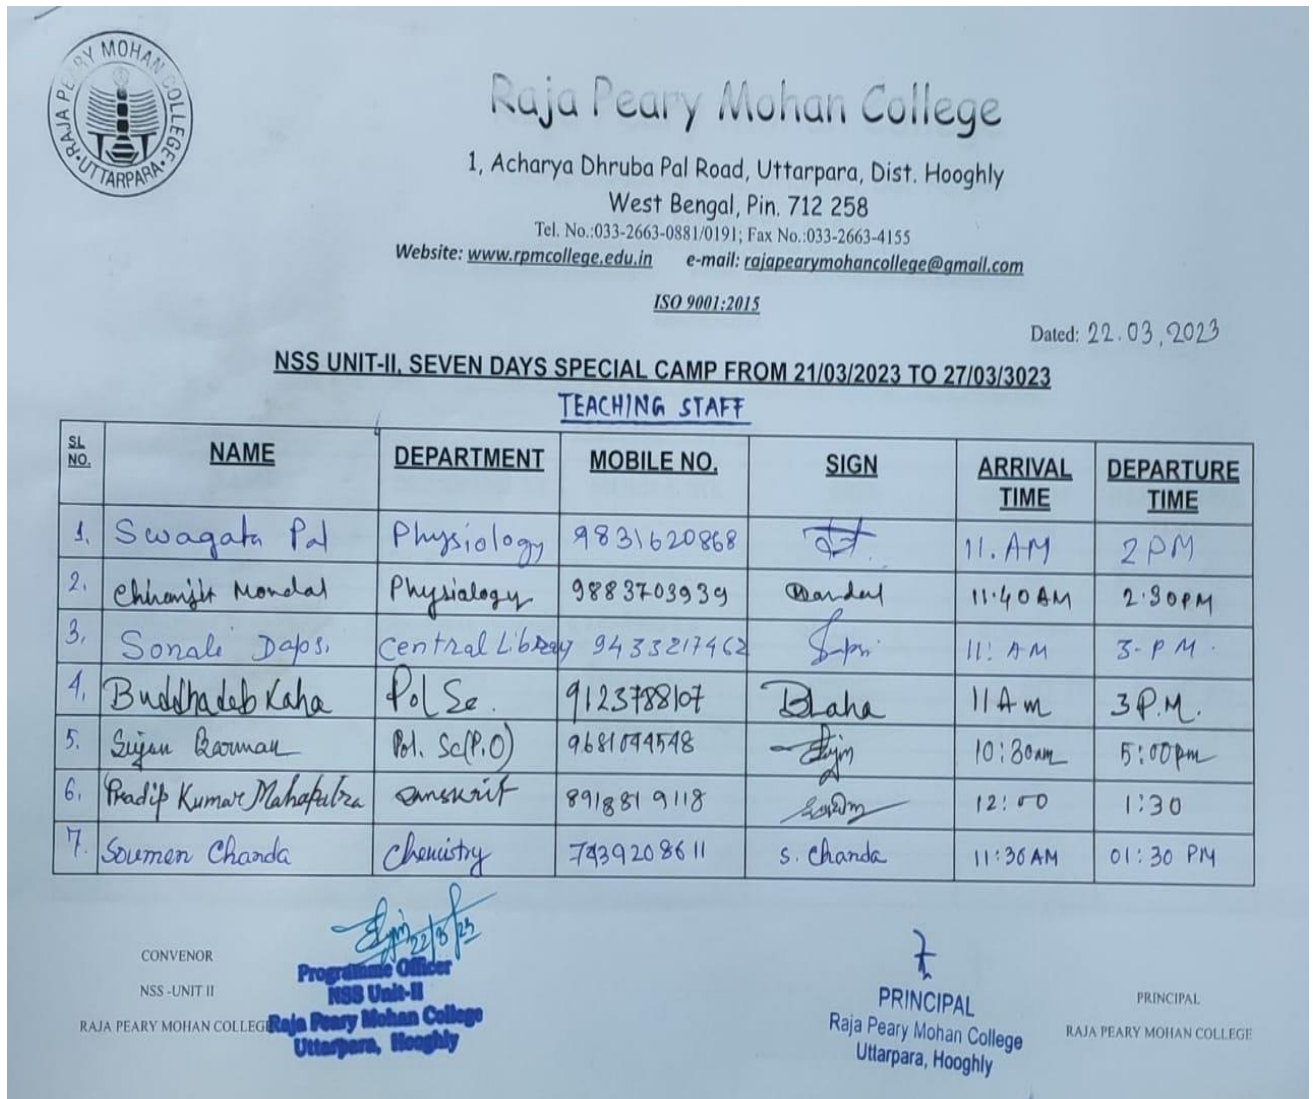 RAJA PEARY MOHAN COLLEGE
UTTARPARA
Raja Peary Mohan College
1, Acharya Dhruba Pal Road, Uttarpara, Dist. Hooghly
West Bengal, Pin. 712 258
Tel. No.:033-2663-0881/0191; Fax No.:033-2663-4155
Website: www.rpmcollege.edu.in e-mail: rajapearymohancollege@gmail.com
ISO 9001:2015
Dated: 22.03.2023
NSS UNIT-II, SEVEN DAYS SPECIAL CAMP FROM 21/03/2023 TO 27/03/3023
TEACHING STAFF
SL NO. NAME DEPARTMENT MOBILE NO. SIGN ARRIVAL TIME DEPARTURE TIME
1. Swagata Pal Physiology 9831620868 11. AM 2 PM
2. Chhanjit Mondal Physiology 9883703939 11.40 AM 2.30 PM
3. Sonali Central Library 9433217462 11: AM 3-PM.
4. Buddhadeb Pol Sc. 9123788107 11 Am 3 P.M.
5. Sujan Barman Pol. Sc(P.O) 9681044548 10:30am 5:00pm
6. Pradip Kumar Mahapatra Sanskrit 8918819118 12:00 1:30
7. Soumen Chanda Chemistry 7439208611 S. Chanda 11:30 AM 01:30 PM
22/3/23
CONVENOR
NSS -UNIT II
RAJA PEARY MOHAN COLLEGE
Programme Officer
NSS Unit-II
Raja Peary Mohan College
Uttarpara, Hooghly
PRINCIPAL
Raja Peary Mohan College
Uttarpara, Hooghly
PRINCIPAL
RAJA PEARY MOHAN COLLEGE